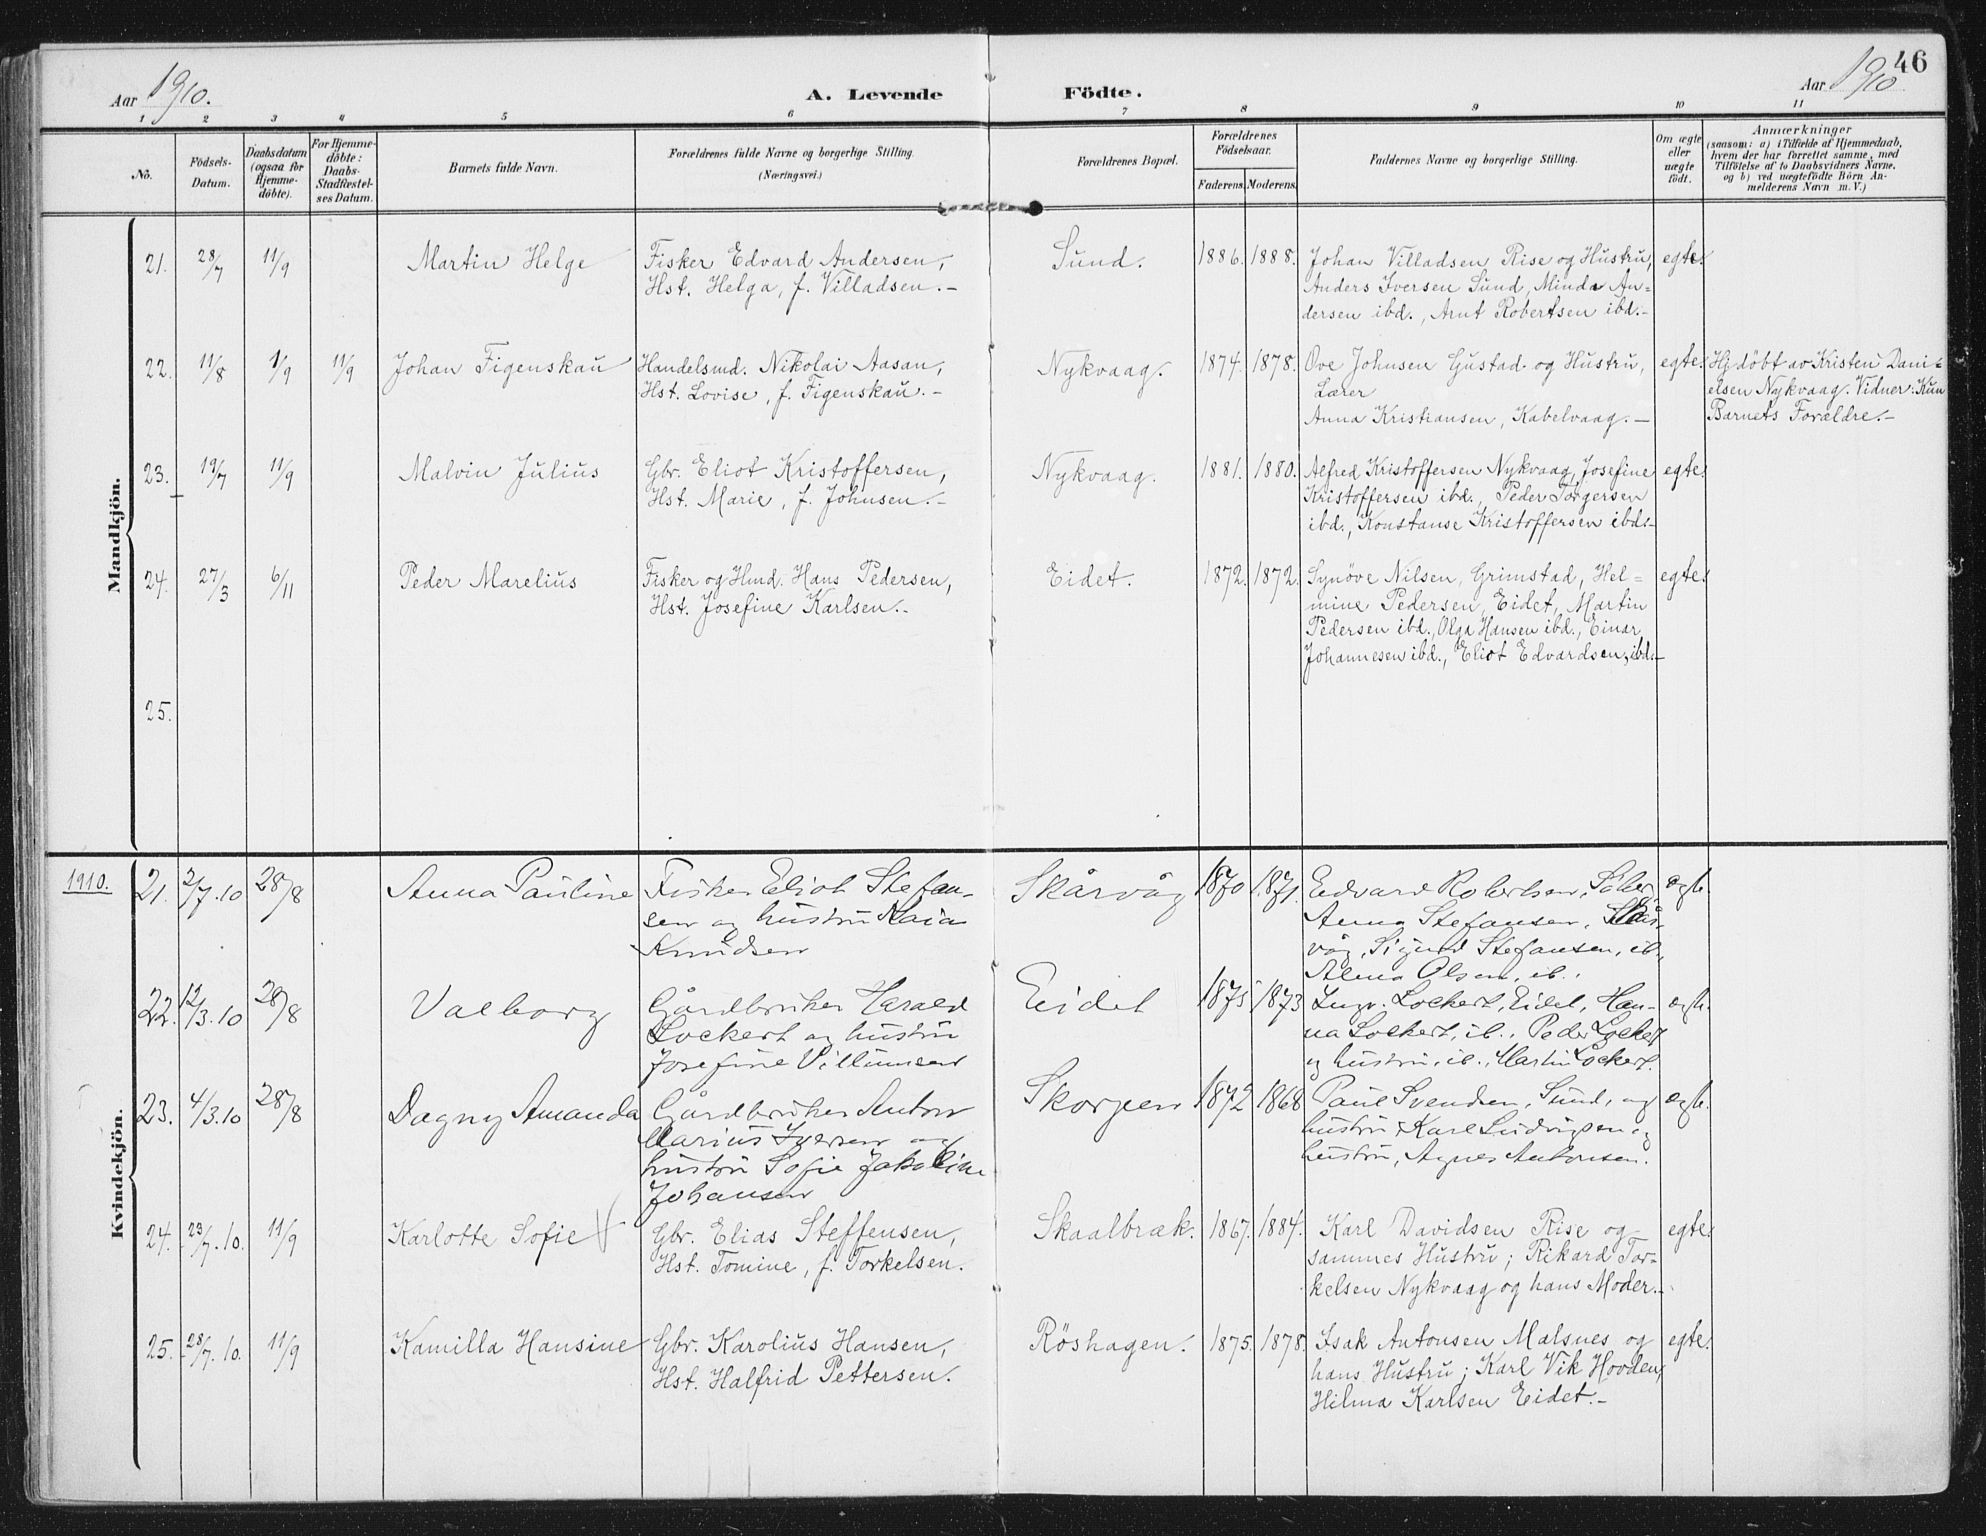 46
Aar 1910.
A. Levende Födte.
Aar 1910.
1 2 3 4 5 6 7 8 9 10 11
No.
Födsels-
Datum.
Daabsdatum
(ogsaa for
Hjemme-
döbte).
For Hjemme-
döbte:
Daabs-
Stadfæstel-
ses Datum.
Barnets fulde Navn.
Forældrenes fulde Navne og borgerlige Stilling.
(Næringsvei.)
Forældrenes Bopæl.
Forældrenes
Födselsaar.
Faderens. Moderens.
Faddernes Navne og borgerlige Stilling.
Om ægte
eller
uægte
født.
Anmærkninger
(saasom: a) i Tilfælde af Hjemmedaab,
hvem der har forrettet samme, med
Tilföielse af to Daabsvidners Navne,
og b) ved uægtefödte Börn An-
melderens Navn m. V.)
Mandkjön.
21. 28/7 11/9 Martin Helge
Fisker Edvard Andersen,
Hst. Helga, f. Villadsen.-
Sund. 1886. 1888.
Johan Villadsen Rise og Hustru,
Anders Iversen Sund, Minda An=
dersen ibd., Arnt Robertsen ibd.-
egte.
22. 11/8 1/9 11/9 Johan Figenskau
Handelsmd. Nikolai Aasan,
Hst. Lovise, f. Figenskau.-
Nykvaag. 1874. 1878.
Ove Johnsen Gustad og Hustru,
Lærer
Anna Kristiansen, Kabelvaag.-
egte.
Hj.döbt av Kristen Dani-
elsen Nykvaag. Vidner: Kun
Barnets Forældre.-
23. 19/7 11/9 Malvin Julius
Gbr. Eliot Kristoffersen,
Hst. Marie, f. Johnsen.-
Nykvaag. 1881. 1880.
Alfred Kristoffersen Nykvaag, Josefine
Kristoffersen ibd., Peder Torgersen
ibd., Konstanse Kristoffersen ibd.-
egte.
24. 27/3 6/11 Peder Marelius
Fisker og Hmd. Hans Pedersen,
Hst. Josefine Karlsen.-
Eidet. 1872. 1872.
Synöve Nilsen, Grimstad, Hel=
mine Pedersen, Eidet, Martin
Pedersen ibd., Olga Hansen ibd., Einar
Johannesen ibd., Eliot Edvardsen, ibd.-
egte.
25.
Kvindekjön.
1910.
21. 2/7.10 28/8 Anna Pauline
Fisker Eliot Stefan-
sen og hustru Maia
Knudsen
Skårvåg 1870 1871.
Edvard Robertsen,
Anna Stefansen, Skår-
våg, Sigurd Stefansen, ib.,
Alma Olsen, ib.
ægte.
22. 12/3.10 28/8 Valborg
Gårdbruker Harald
Lockert og hustru
Josefine Villumsen
Eidet 1875 1873
Ingv. Lockert, Eidet, Han-
na Lockert, ib., Peder Lockert
og hustru, ib., Martin Lockert.
ægte.
23. 4/3.10 28/8 Dagny Amanda
Gårdbruker Anton
Marius Iversen og
hustru Sofie Jakobine
Johansen
Skorpen 1872 1868
Paul Svendsen, Sund, og
hustru, Karl Ludvigsen og
hustru, Agnes Antonsen.
ægte.
24. 23/7.10. 11/9 Karlotte Sofie
Gbr. Elias Steffensen,
Hst. Tomine, f. Torkelsen.
Skaalbrak. 1867. 1884.
Karl Davidsen Rise og
sammes Hustru; Rikard Tor-
kelsen Nykvaag og hans Moder.-
egte.
25. 28/7.10. 11/9 Kamilla Hansine
Gbr. Karolius Hansen,
Hst. Halfrid Pettersen.
Röshagen. 1875. 1878.
Isak Antonsen Malsnes og
hans Hustru; Karl Vik Hovden,
Hilma Karlsen Eidet.-
egte.